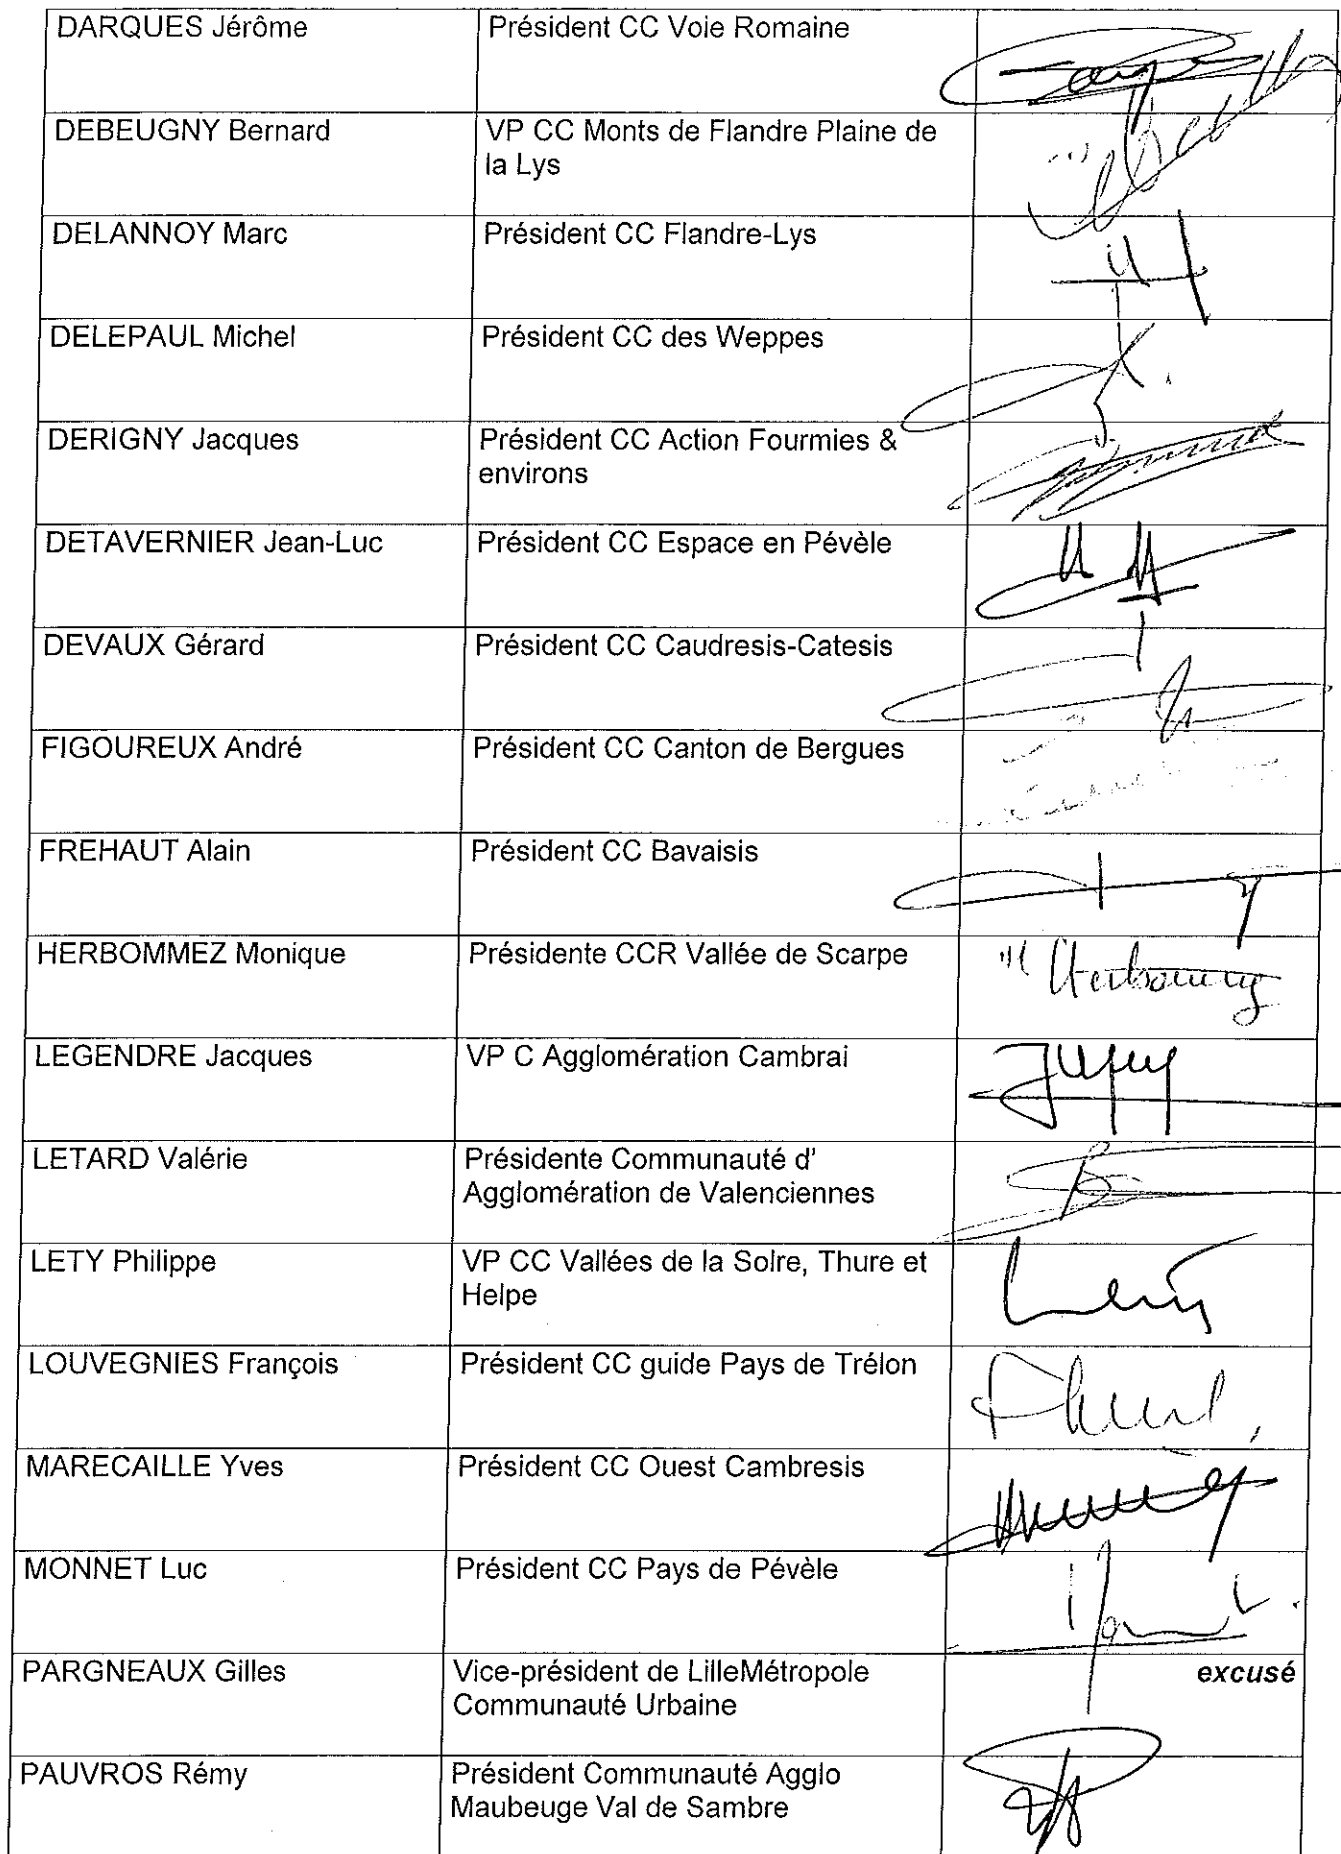 DARQUES Jérôme
Président CC Voie Romaine
DEBEUGNY Bernard
VP CC Monts de Flandre Plaine de
la Lys
DELANNOY Marc
Président CC Flandre-Lys
DELEPAUL Michel
Président CC des Weppes
DERIGNY Jacques
Président CC Action Fourmies &
environs
DETAVERNIER Jean-Luc
Président CC Espace en Pévèle
DEVAUX Gérard
Président CC Caudresis-Catesis
FIGOUREUX André
Président CC Canton de Bergues
FREHAUT Alain
Président CC Bavaisis
HERBOMMEZ Monique
Présidente CCR Vallée de Scarpe
LEGENDRE Jacques
VP C Agglomération Cambrai
LETARD Valérie
Présidente Communauté d'
Agglomération de Valenciennes
LETY Philippe
VP CC Vallées de la Solre, Thure et
Helpe
LOUVEGNIES François
Président CC guide Pays de Trélon
MARECAILLE Yves
Président CC Ouest Cambresis
MONNET Luc
Président CC Pays de Pévèle
PARGNEAUX Gilles
Vice-président de LilleMétropole
Communauté Urbaine
excusé
PAUVROS Rémy
Président Communauté Agglo
Maubeuge Val de Sambre